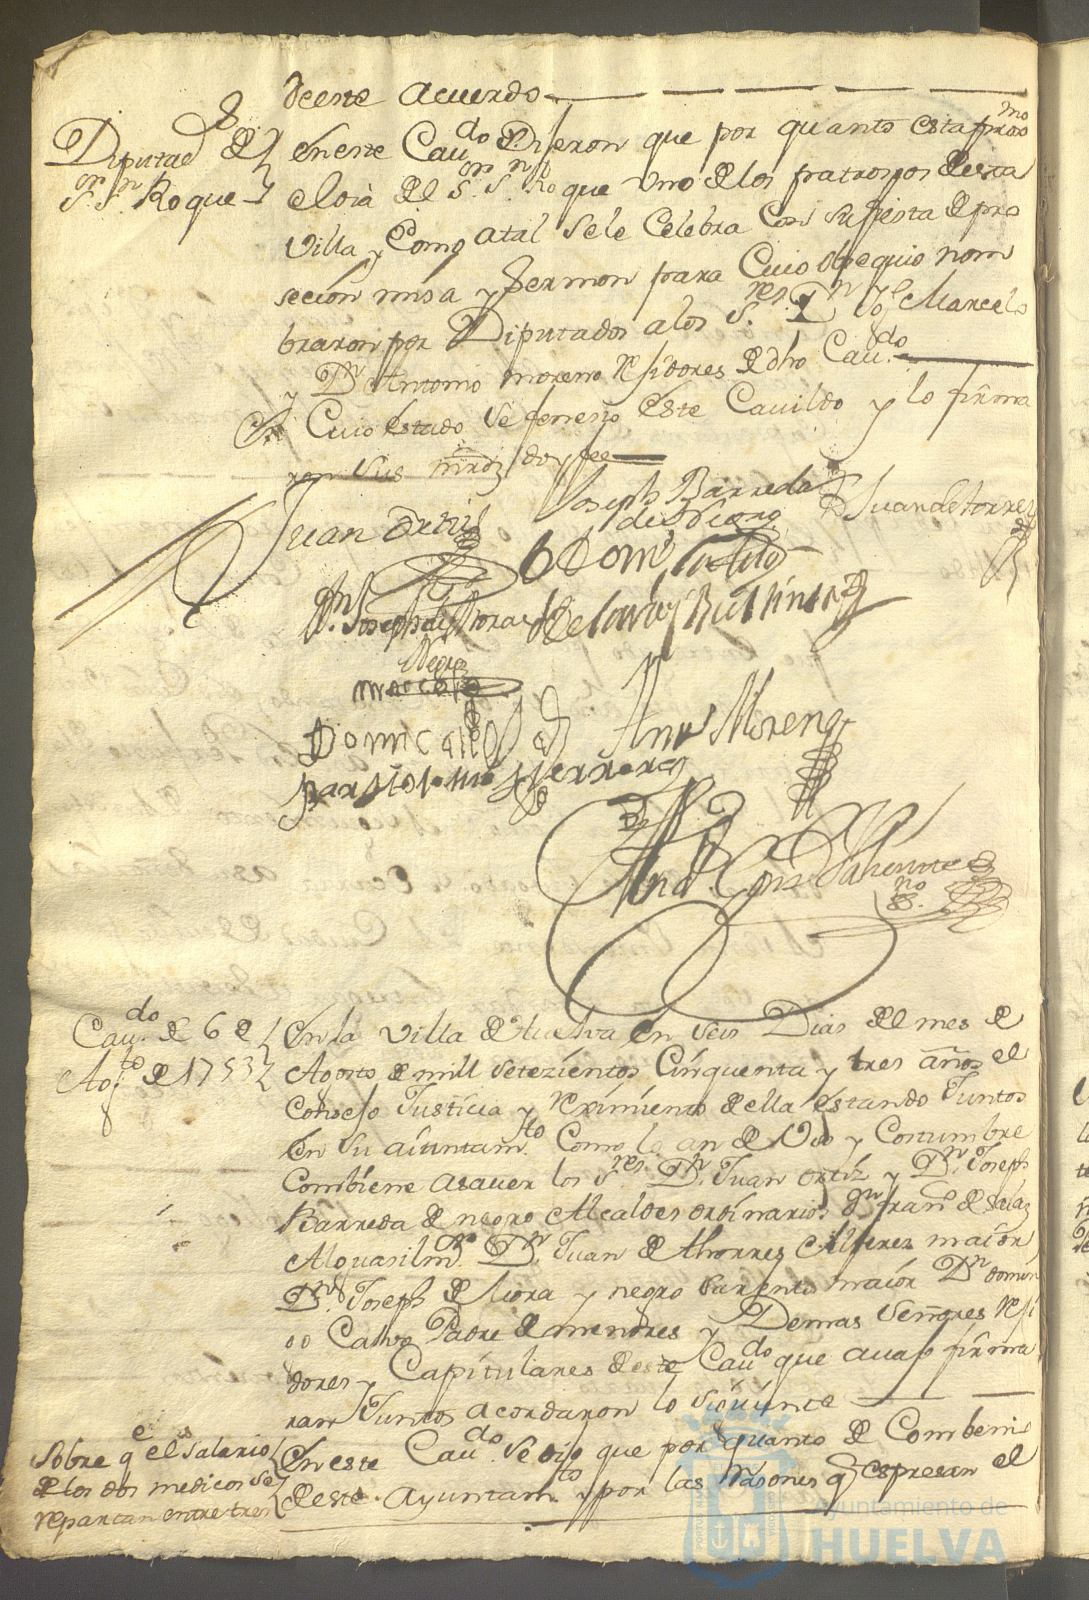 deeste acuerdo
Diputad.s de
Sr. Sn. Roque
En este Cau.do Dijeron que por quanto esta proxmo
el dia de el Sr. Sn. Roque uno de los patronos desta
villa y Como atal sele Celebra Con su fiesta de pro
secion misa y sermon para Cuio obsequio nom
braron por Diputados a los S.res Dn. Jph Marcelo
y Dn. Antonio moreno rejidores de dho Cau.do
En Cuio estado se feneció este Cauildo y lo firma
ron sus mrdz doy fee
Juan Ortiz
Joseph Barreda
de Negro
Juan de torres
Dn. Joseph de Mora
Negro
marcelo
Domi Calbo
Antt Moreno
Bartolome Herrera
Cau.do de 6 de
Agto de 1753
En la villa de Huelva en seis Dias de el mes de
Agosto de mill setezientos Cinquenta y tres años el
Consejo Justicia y reximiento de ella estando Juntos
en su aiuntam.to Como lo an de Uso y Costumbre
Combiene asauer los S.res Dn. Juan ortiz y Dn. Joseph
Barreda de negro Alcaldes ordinarios Dn. fran.co de
Alguasil m.or Dn. Juan de thorres Alferez maior
Dn. Joseph de Mora y negro maior Dn. domin
go Calvo Padre de menores y Demas Señores reji
dores y Capitulares deeste Cau.do que auajo firma
ran Juntos acordaron lo siguiente
Sobre q.e el salario
de los dos medicos se
repartan entre tres
En este Cau.do se dijo que por quanto de Combeni
deeste Ayuntam.to y por las Rasones q. espresan el
Ayuntamiento de
HUELVA